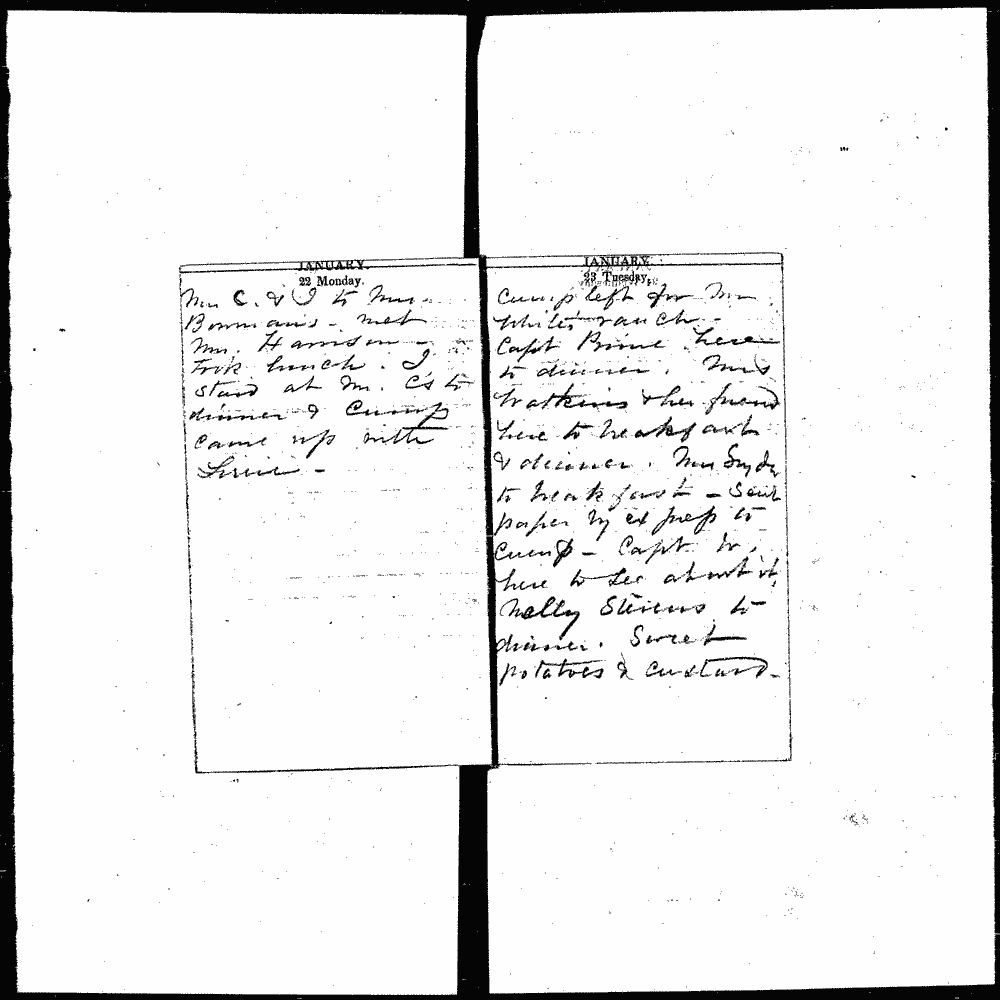 JANUARY.
22 Monday.
Mrs C. & I to Mrs
Bowman's - met
Mrs. Harrison -
took lunch. I
staid at Mr. C's to
dinner & Cump
came up with
JANUARY.
23 Tuesday.
Cump left for Mr.
White's ranch -
Capt Prime here
to dinner. Mrs
Watkins & her friend
here to breakfast
& dinner. Mrs Snyder
to breakfast - Sent
paper by express to
Cump - Capt W.
here to see about it,
Nelly Stevens to
dinner. Sweet
potatoes & custard -